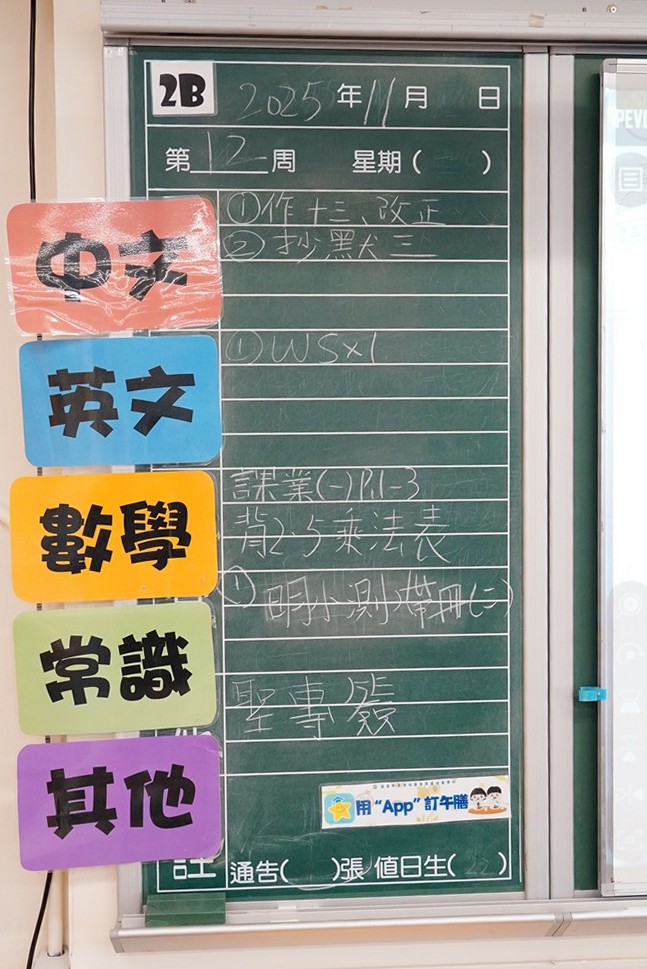 2B 2025年11月 日
第12周 星期( )
中文
①作十三、改正
②抄默三
英文
①WS×1
數學
課業(一)P.1-3
背2、5乘法表
常識
①明小測帶冊(二)
其他
聖專簽
用“App”訂午膳
註 通告( )張 值日生( )
PEVE